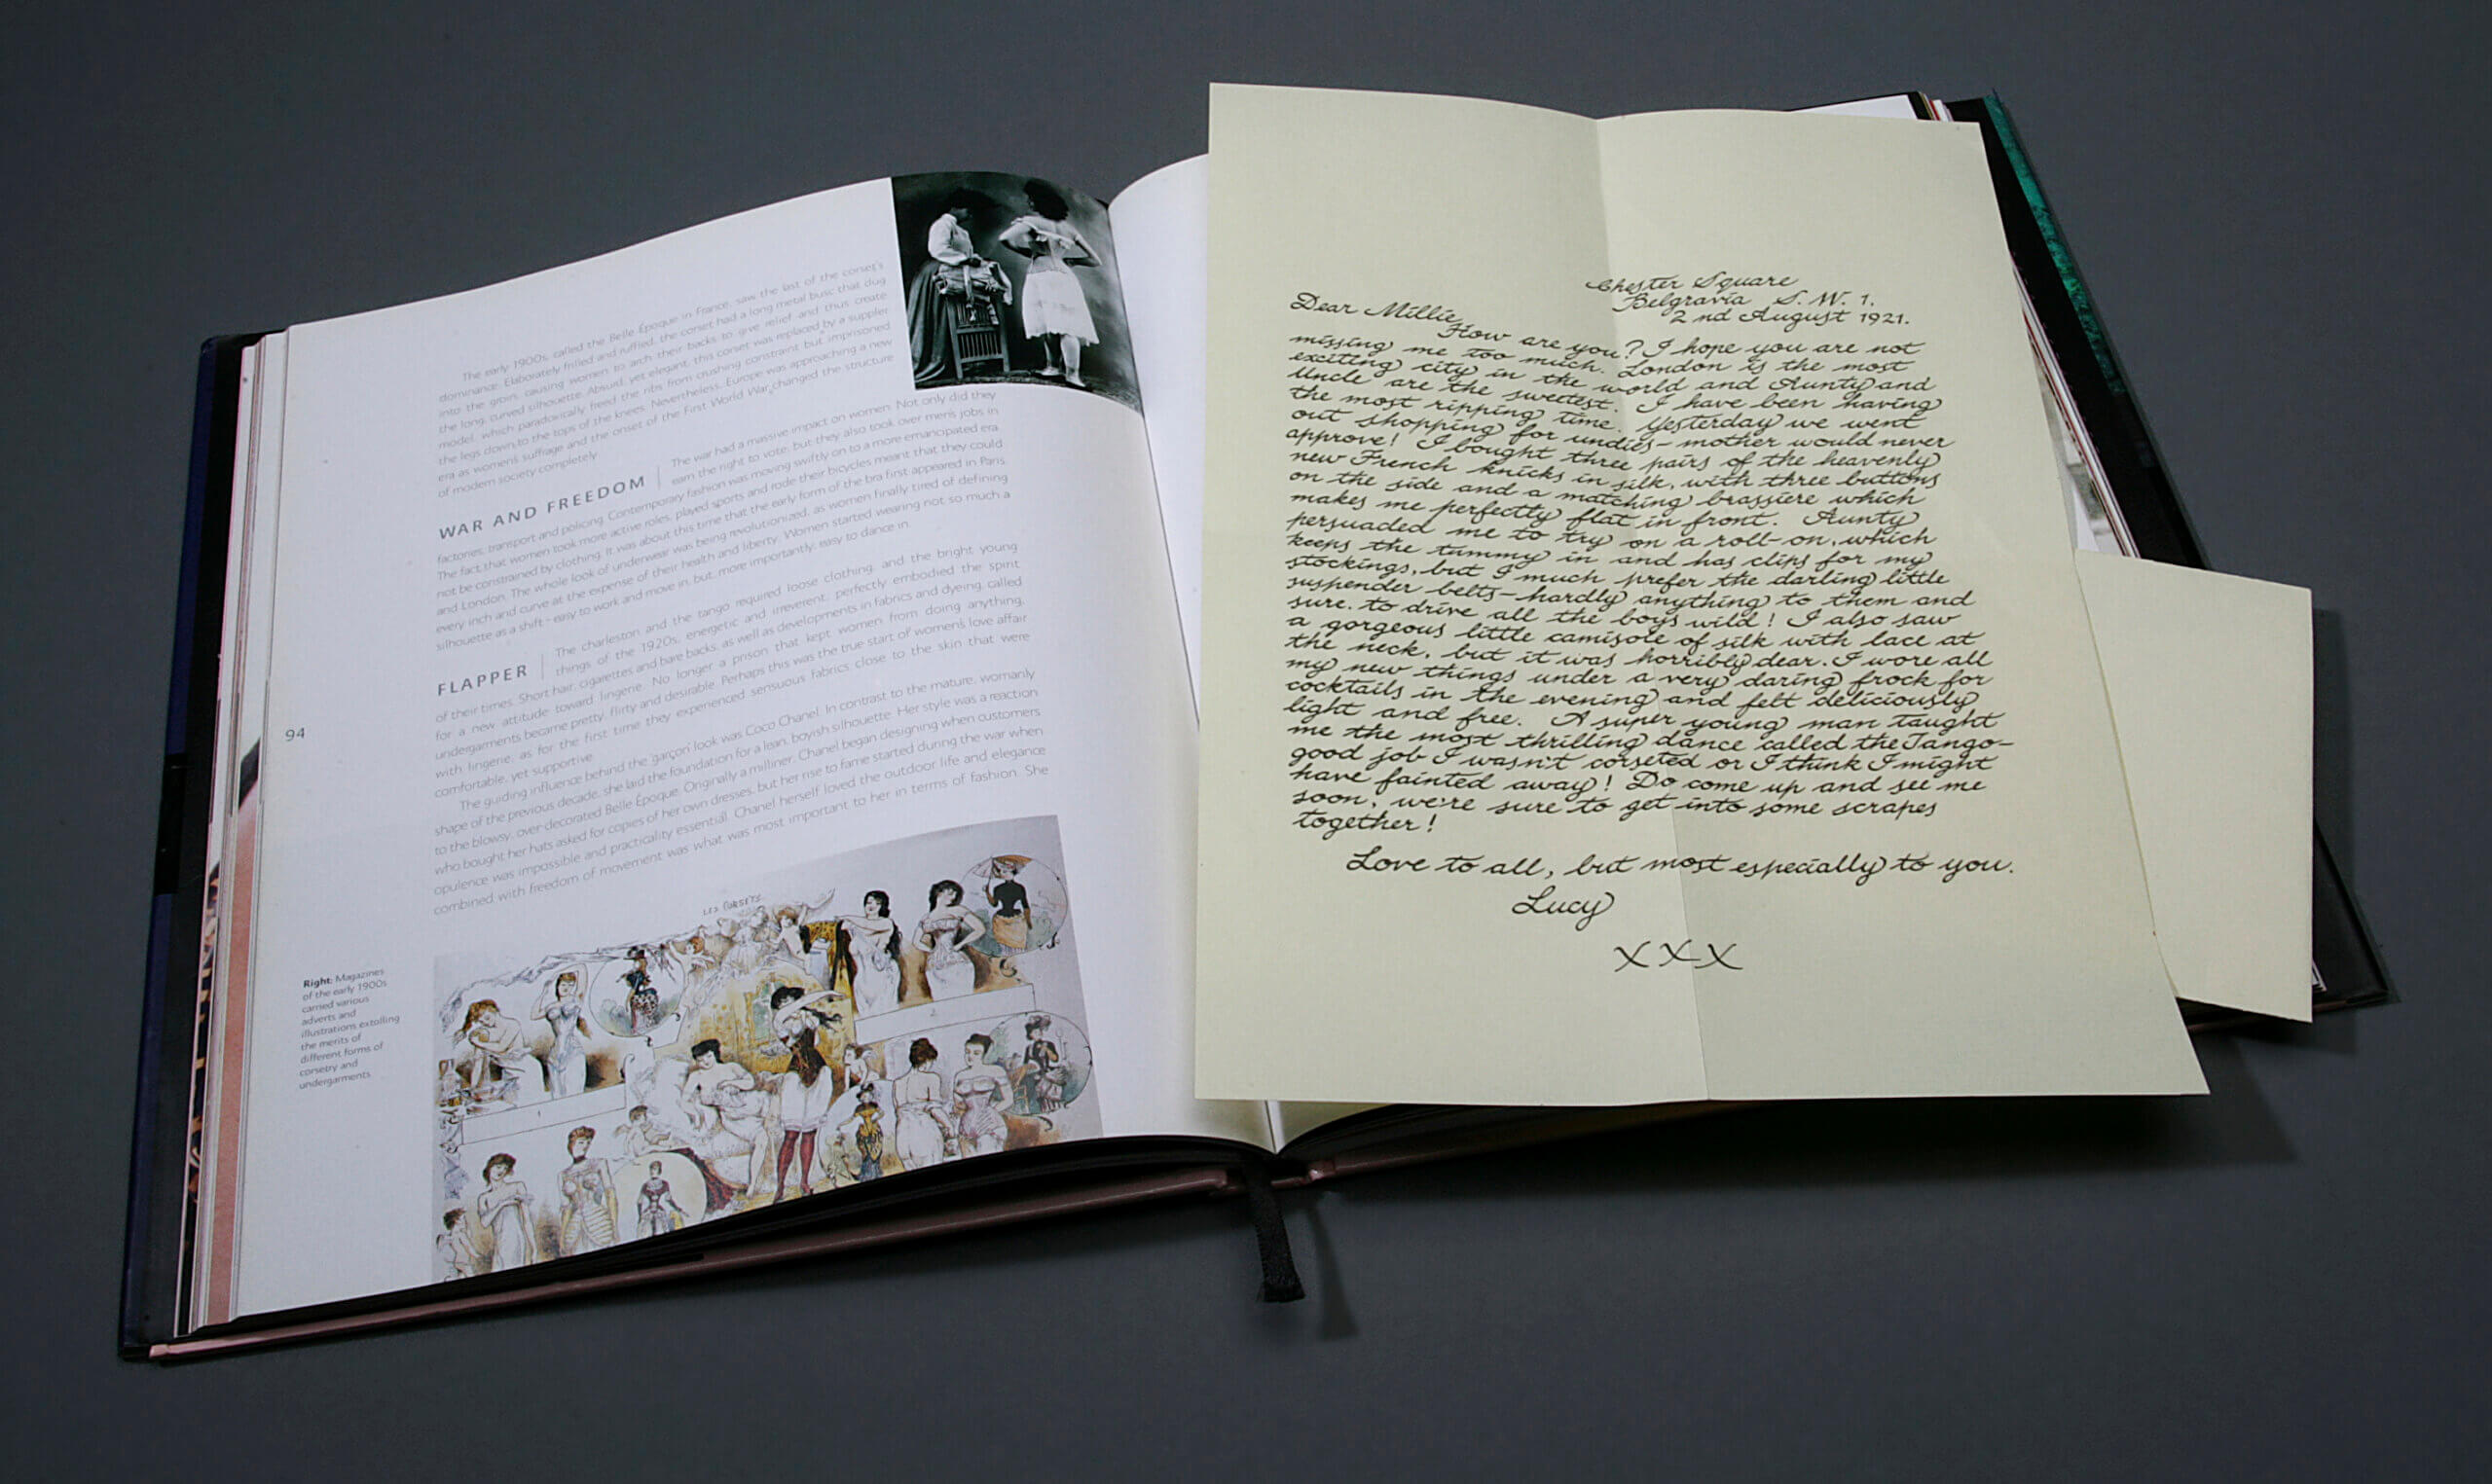 The early 1900s, called the Belle Époque in France, saw the last of the corset's
dominance. Elaborately frilled and ruffled, the corset had a long metal busc that dug
into the groin, causing women to arch their backs to give relief and thus create
the long, curved silhouette. Absurd, yet elegant, this corset was replaced by a suppler
model, which paradoxically freed the ribs from crushing constraint but imprisoned
the legs down to the tops of the knees. Nevertheless, Europe was approaching a new
era as women's suffrage and the onset of the First World War changed the structure
of modern society completely.
WAR AND FREEDOM
The war had a massive impact on women. Not only did they
earn the right to vote, but they also took over men's jobs in
factories, transport and policing. Contemporary fashion was moving swiftly on to a more emancipated era.
The fact that women took more active roles, played sports and rode their bicycles meant that they could
not be constrained by clothing. It was about this time that the early form of the bra first appeared in Paris
and London. The whole look of underwear was being revolutionized, as women finally tired of defining
every inch and curve at the expense of their health and liberty. Women started wearing not so much a
silhouette as a shift - easy to work and move in, but, more importantly, easy to dance in.
FLAPPER
The charleston and the tango required loose clothing, and the bright young
things of the 1920s, energetic and irreverent, perfectly embodied the spirit
of their times. Short hair, cigarettes and bare backs, as well as developments in fabrics and dyeing, called
for a new attitude toward lingerie. No longer a prison that kept women from doing anything,
undergarments became pretty, flirty and desirable. Perhaps this was the true start of women's love affair
with lingerie, as for the first time they experienced sensuous fabrics close to the skin that were
comfortable, yet supportive.
The guiding influence behind the 'garçon' look was Coco Chanel. In contrast to the mature, womanly
shape of the previous decade, she laid the foundation for a lean, boyish silhouette. Her style was a reaction
to the blowsy, over-decorated Belle Époque. Originally a milliner, Chanel began designing when customers
who bought her hats asked for copies of her own dresses, but her rise to fame started during the war when
opulence was impossible and practicality essential. Chanel herself loved the outdoor life and elegance
combined with freedom of movement was what was most important to her in terms of fashion. She
94
Right: Magazines
of the early 1900s
carried various
adverts and
illustrations extolling
the merits of
different forms of
corsetry and
undergarments.
LES CORSETS
1
2
Chester Square
Belgravia S.W.1.
2nd August 1921.
Dear Millie,
How are you? I hope you are not
missing me too much. London is the most
exciting city in the world and Aunty and
Uncle are the sweetest. I have been having
the most ripping time. Yesterday we went
out shopping for undies - mother would never
approve! I bought three pairs of the heavenly
new French knicks in silk, with three buttons
on the side and a matching brassiere which
makes me perfectly flat in front. Aunty
persuaded me to try on a roll-on, which
keeps the tummy in and has clips for my
stockings, but I much prefer the darling little
suspender belts - hardly anything to them and
sure to drive all the boys wild! I also saw
a gorgeous little camisole of silk with lace at
the neck, but it was horribly dear. I wore all
my new things under a very daring frock for
cocktails in the evening and felt deliciously
light and free. A super young man taught
me the most thrilling dance called the Tango -
good job I wasn't corseted or I think I might
have fainted away! Do come up and see me
soon, we're sure to get into some scrapes
together!
Love to all, but most especially to you.
Lucy
XXX